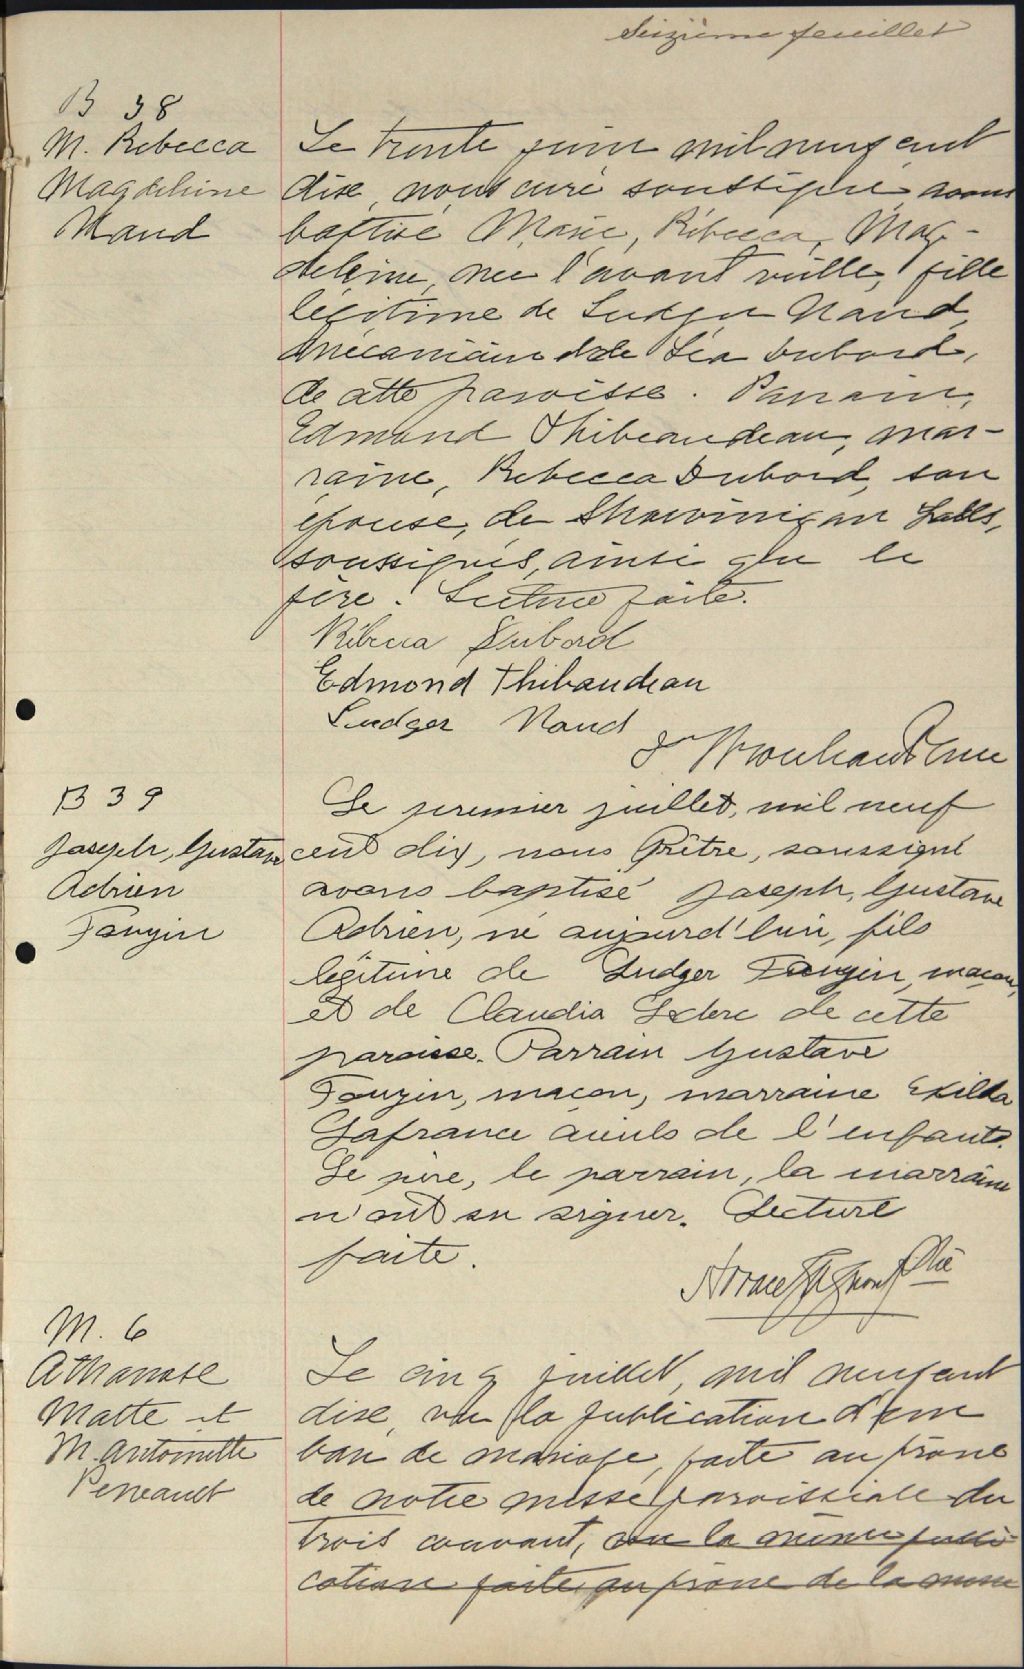 Seizième feuillet
B 38
M. Rebecca
Magdeleine
Naud
Le trente juin mil neuf cent
dix, nous curé soussigné avons
baptisé Marie, Rébecca, Mag-
deleine, née l'avant veille, fille
légitime de Ludger Naud,
mécanicien et de Léa Dubord,
de cette paroisse. Parrain,
Edmond Thibeaudeau, mar-
raine, Rebecca Dubord, son
épouse, de Shawinigan Falls,
soussignés, ainsi que le
père. Lecture faite.
Rébecca Dubord
Edmond Thibaudeau
Ludger Naud
B 39
Joseph, Gustave
Adrien
Fougin
Le premier juillet, mil neuf
cent dix, nous Prêtre, soussigné
avons baptisé Joseph, Gustave
Adrien, né aujourd'hui, fils
légitime de Ludger Fougin, maçon,
et de Claudia Leclerc de cette
paroisse. Parrain Gustave
Fougin, maçon, marraine Exilda
Lafrance aïeuls de l'enfant.
Le père, le parrain, la marraine
n'ont su signer. Lecture
faite.
Ptre
M. 6
Athanase
Matte et
M. Antoinette
Perreault
Le cinq juillet, mil neuf cent
dix, vu la publication d'un
ban de mariage, faite au prône
de notre messe paroissiale du
trois courant, vu la même publi-
cation faite, au prône de la messe